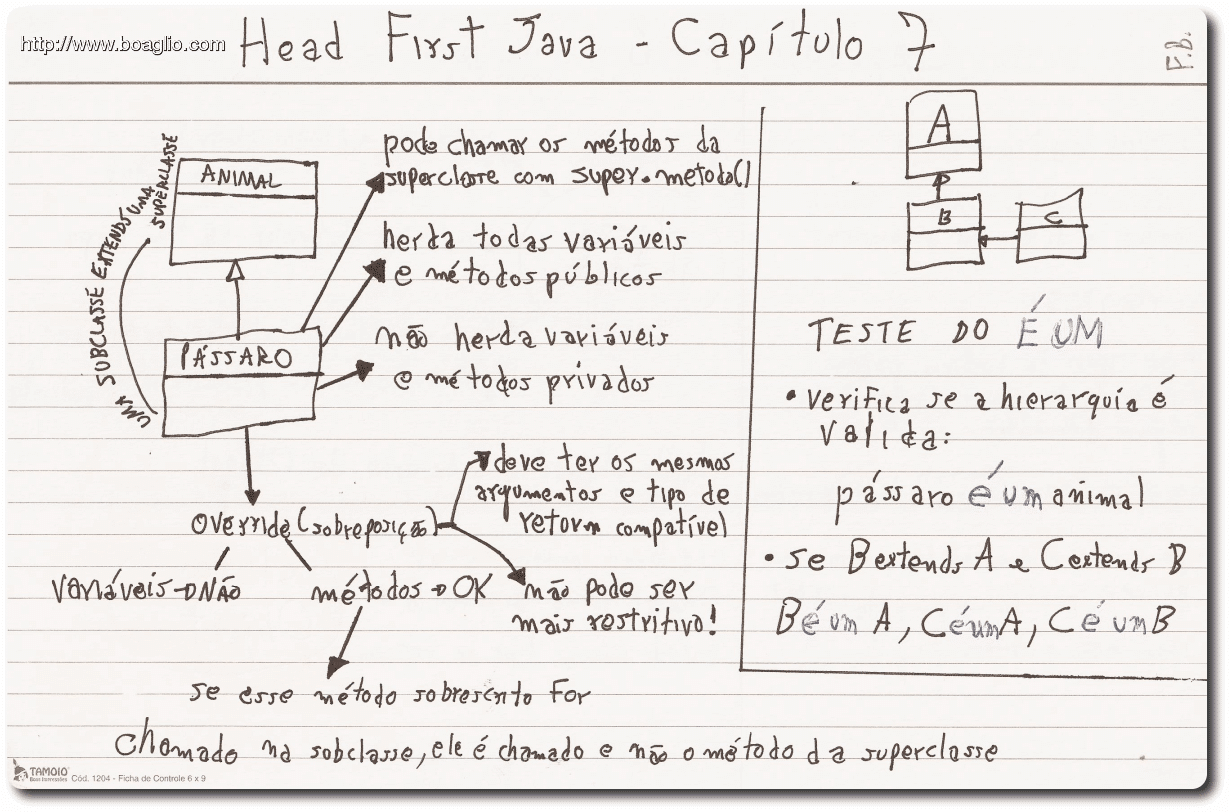 http://www.boaglio.com
Head First Java - Capítulo 7
F.B.
ANIMAL
PÁSSARO
UMA SUBCLASSE EXTENDS UMA
SUPERCLASSE
pode chamar os métodos da
superclasse com super.metodo()
herda todas variáveis
e métodos públicos
não herda variáveis
e métodos privados
Override (sobreposição)
deve ter os mesmos
argumentos e tipo de
retorno compatível
não pode ser
mais restritivo!
variáveis → NÃO
métodos → OK
se esse método sobrescrito for
chamado na subclasse, ele é chamado e não o método da superclasse
A
B
C
TESTE DO É UM
• verifica se a hierarquia é
valida:
pássaro é um animal
• se B extends A e C extends B
B é um A, C é um A, C é um B
TAMOIO
Cód. 1204 - Ficha de Controle 6 x 9